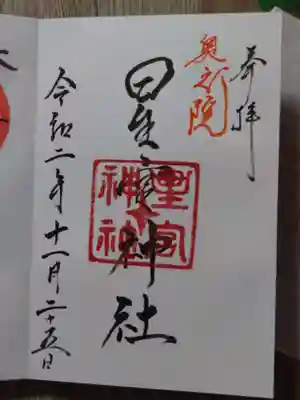 奉拝
奥之院
星宮神社
令和二年十一月二十五日